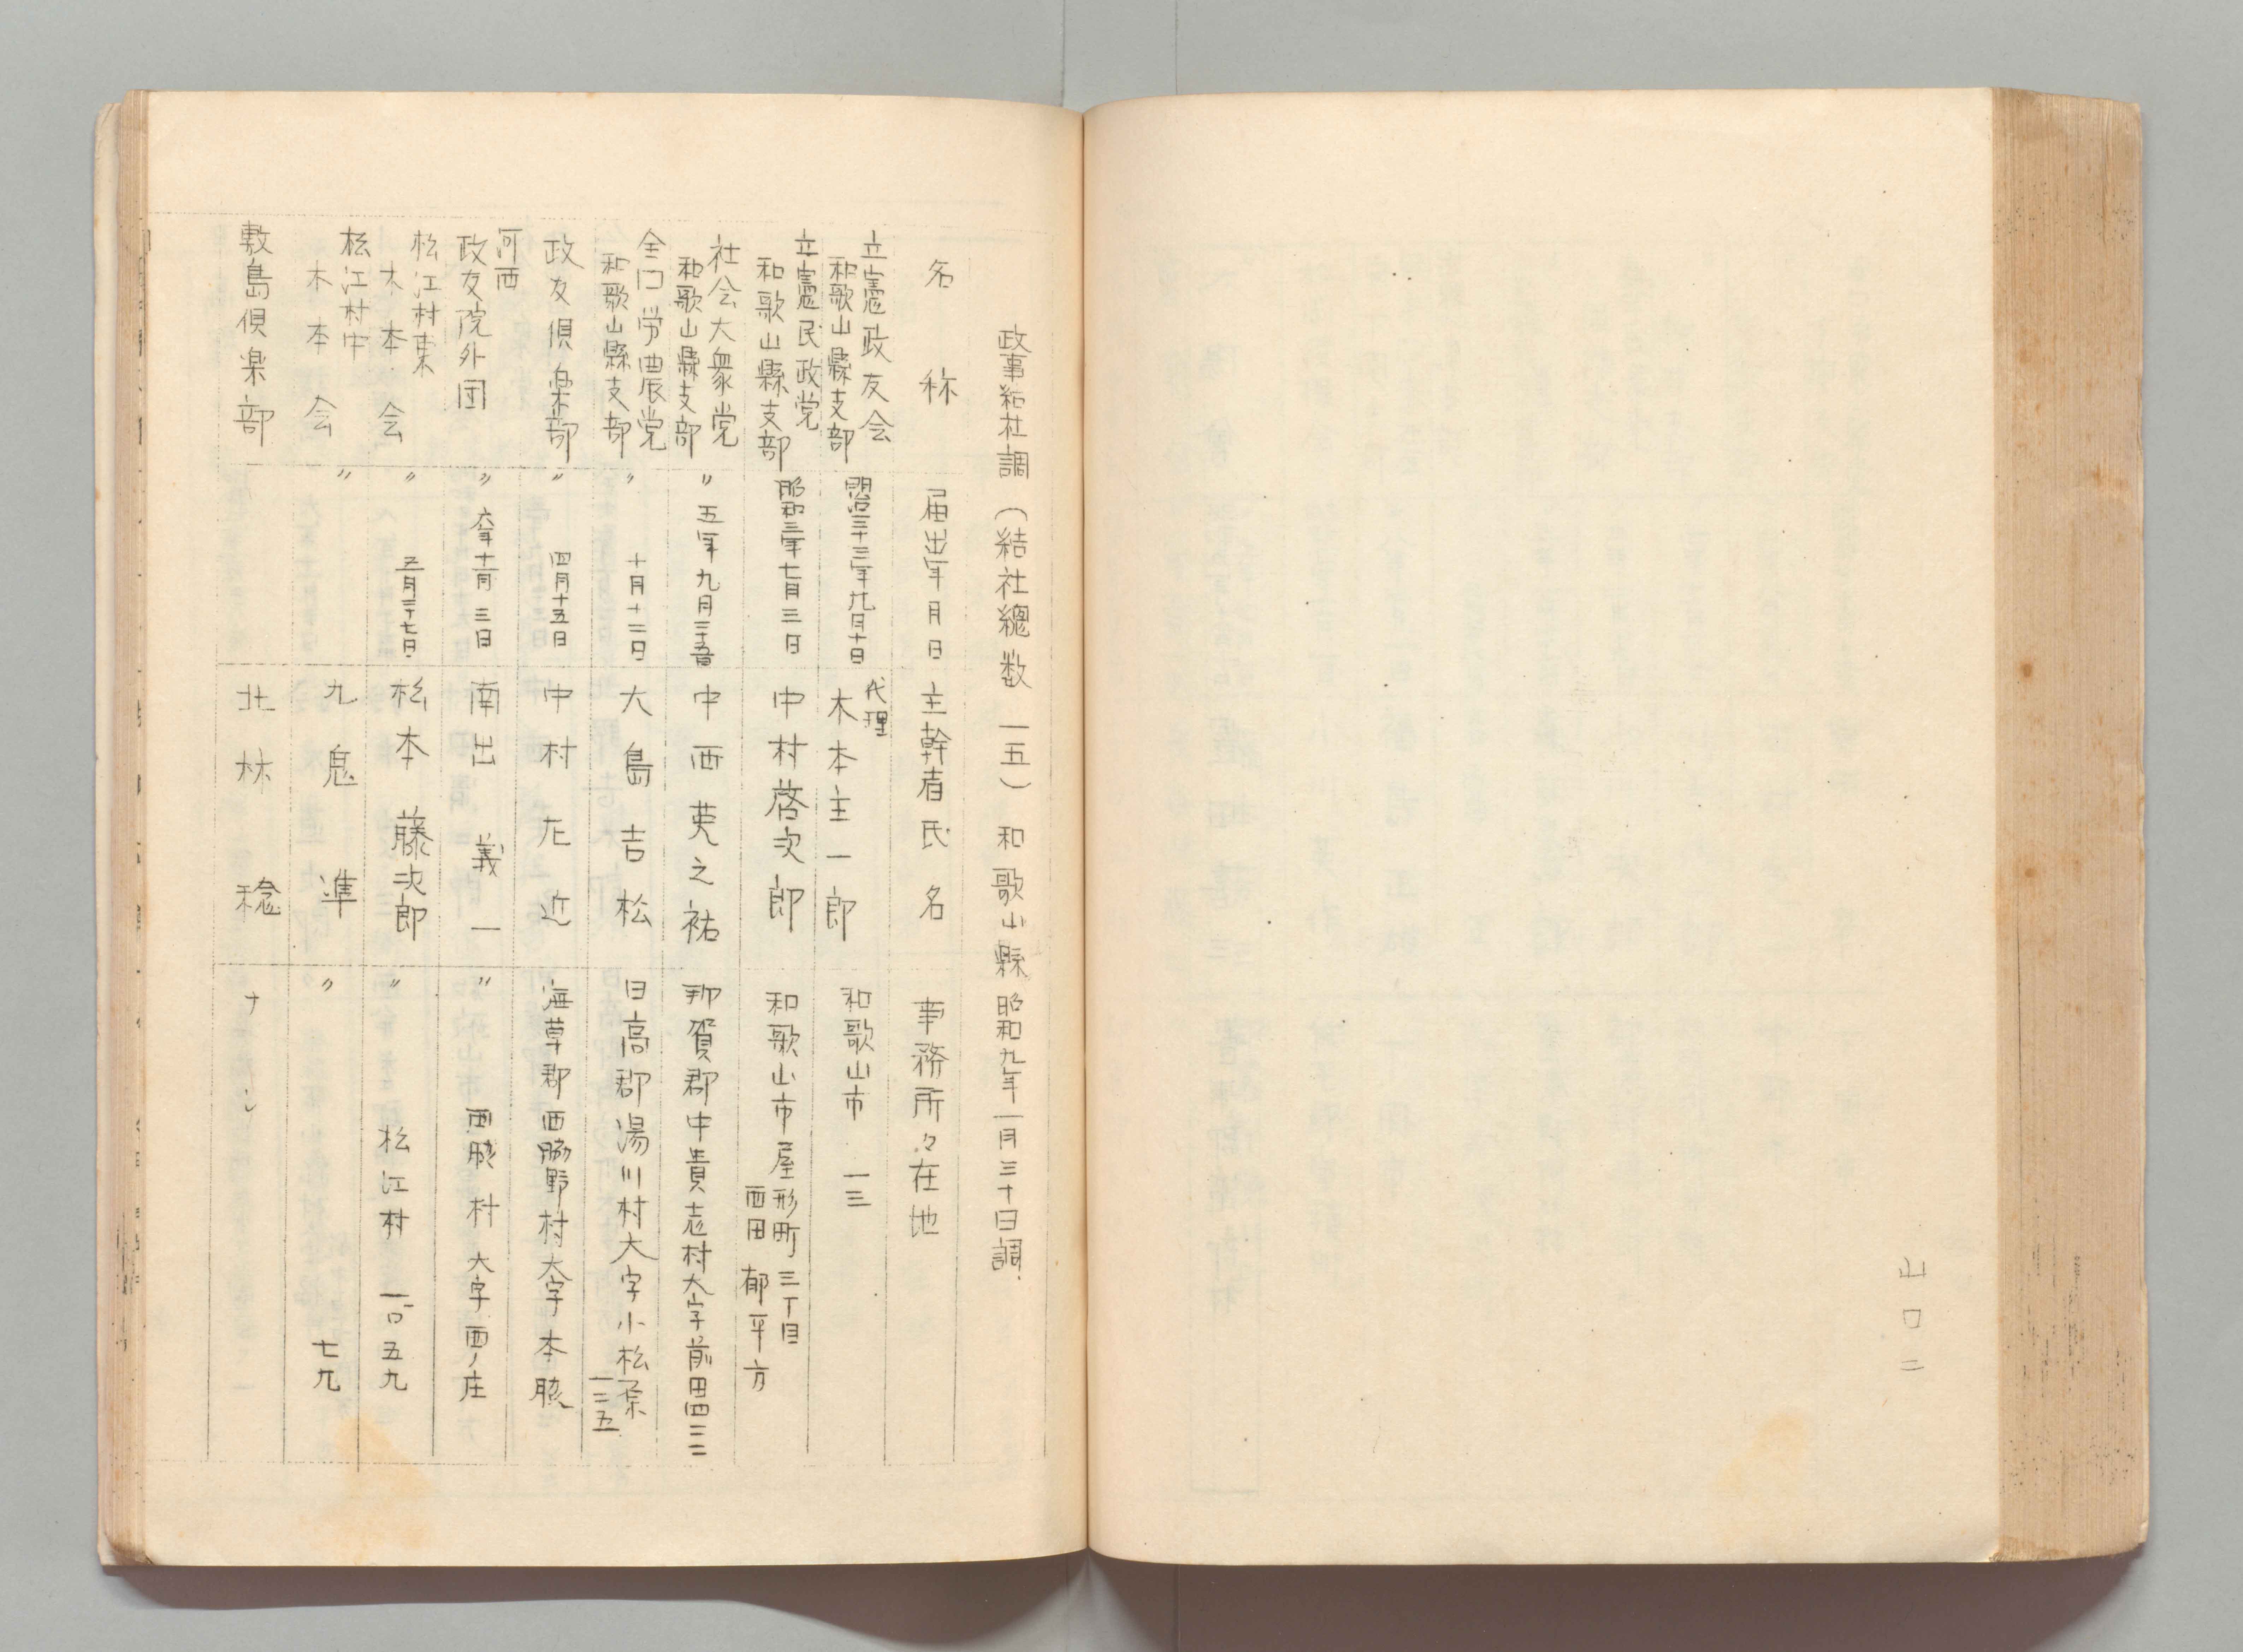 山口二
政事結社調（結社總数 一五） 和歌山縣 昭和九年一月三十日調
名称 届出年月日 主幹者氏名 事務所々在地
立憲政友会
和歌山縣支部 明治三十三年九月十日 代理 木本主一郎 和歌山市 一三
立憲民政党
和歌山縣支部 昭和三年七月三日 中村啓次郎 和歌山市屋形町三丁目
西田郁平方
社会大衆党
和歌山縣支部 〃 五年九月二十五日 中西 之祐 那賀郡中貴志村大字前田四三二
全口労農党
和歌山縣支部 〃 十月十二日 大島吉松 日高郡湯川村大字小松原
一三五
政友倶楽部 〃 四月十五日 中村左近 海草郡西脇野村大字本脇
河西
政友院外団 〃 六年十一月三日 南出義一 〃 西脇村大字西ノ庄
松江村東
木本会 〃 五月二十七日 松本藤次郎 〃 松江村 一〇五九
松江村中
木本会 〃 九鬼準 〃 七九
敷島倶楽部 北林稔 ナシ